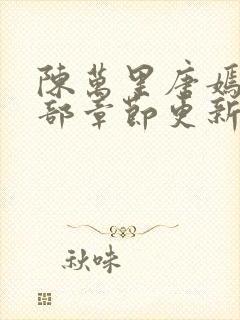 陳萬里唐嫣
部章節更新
秋味